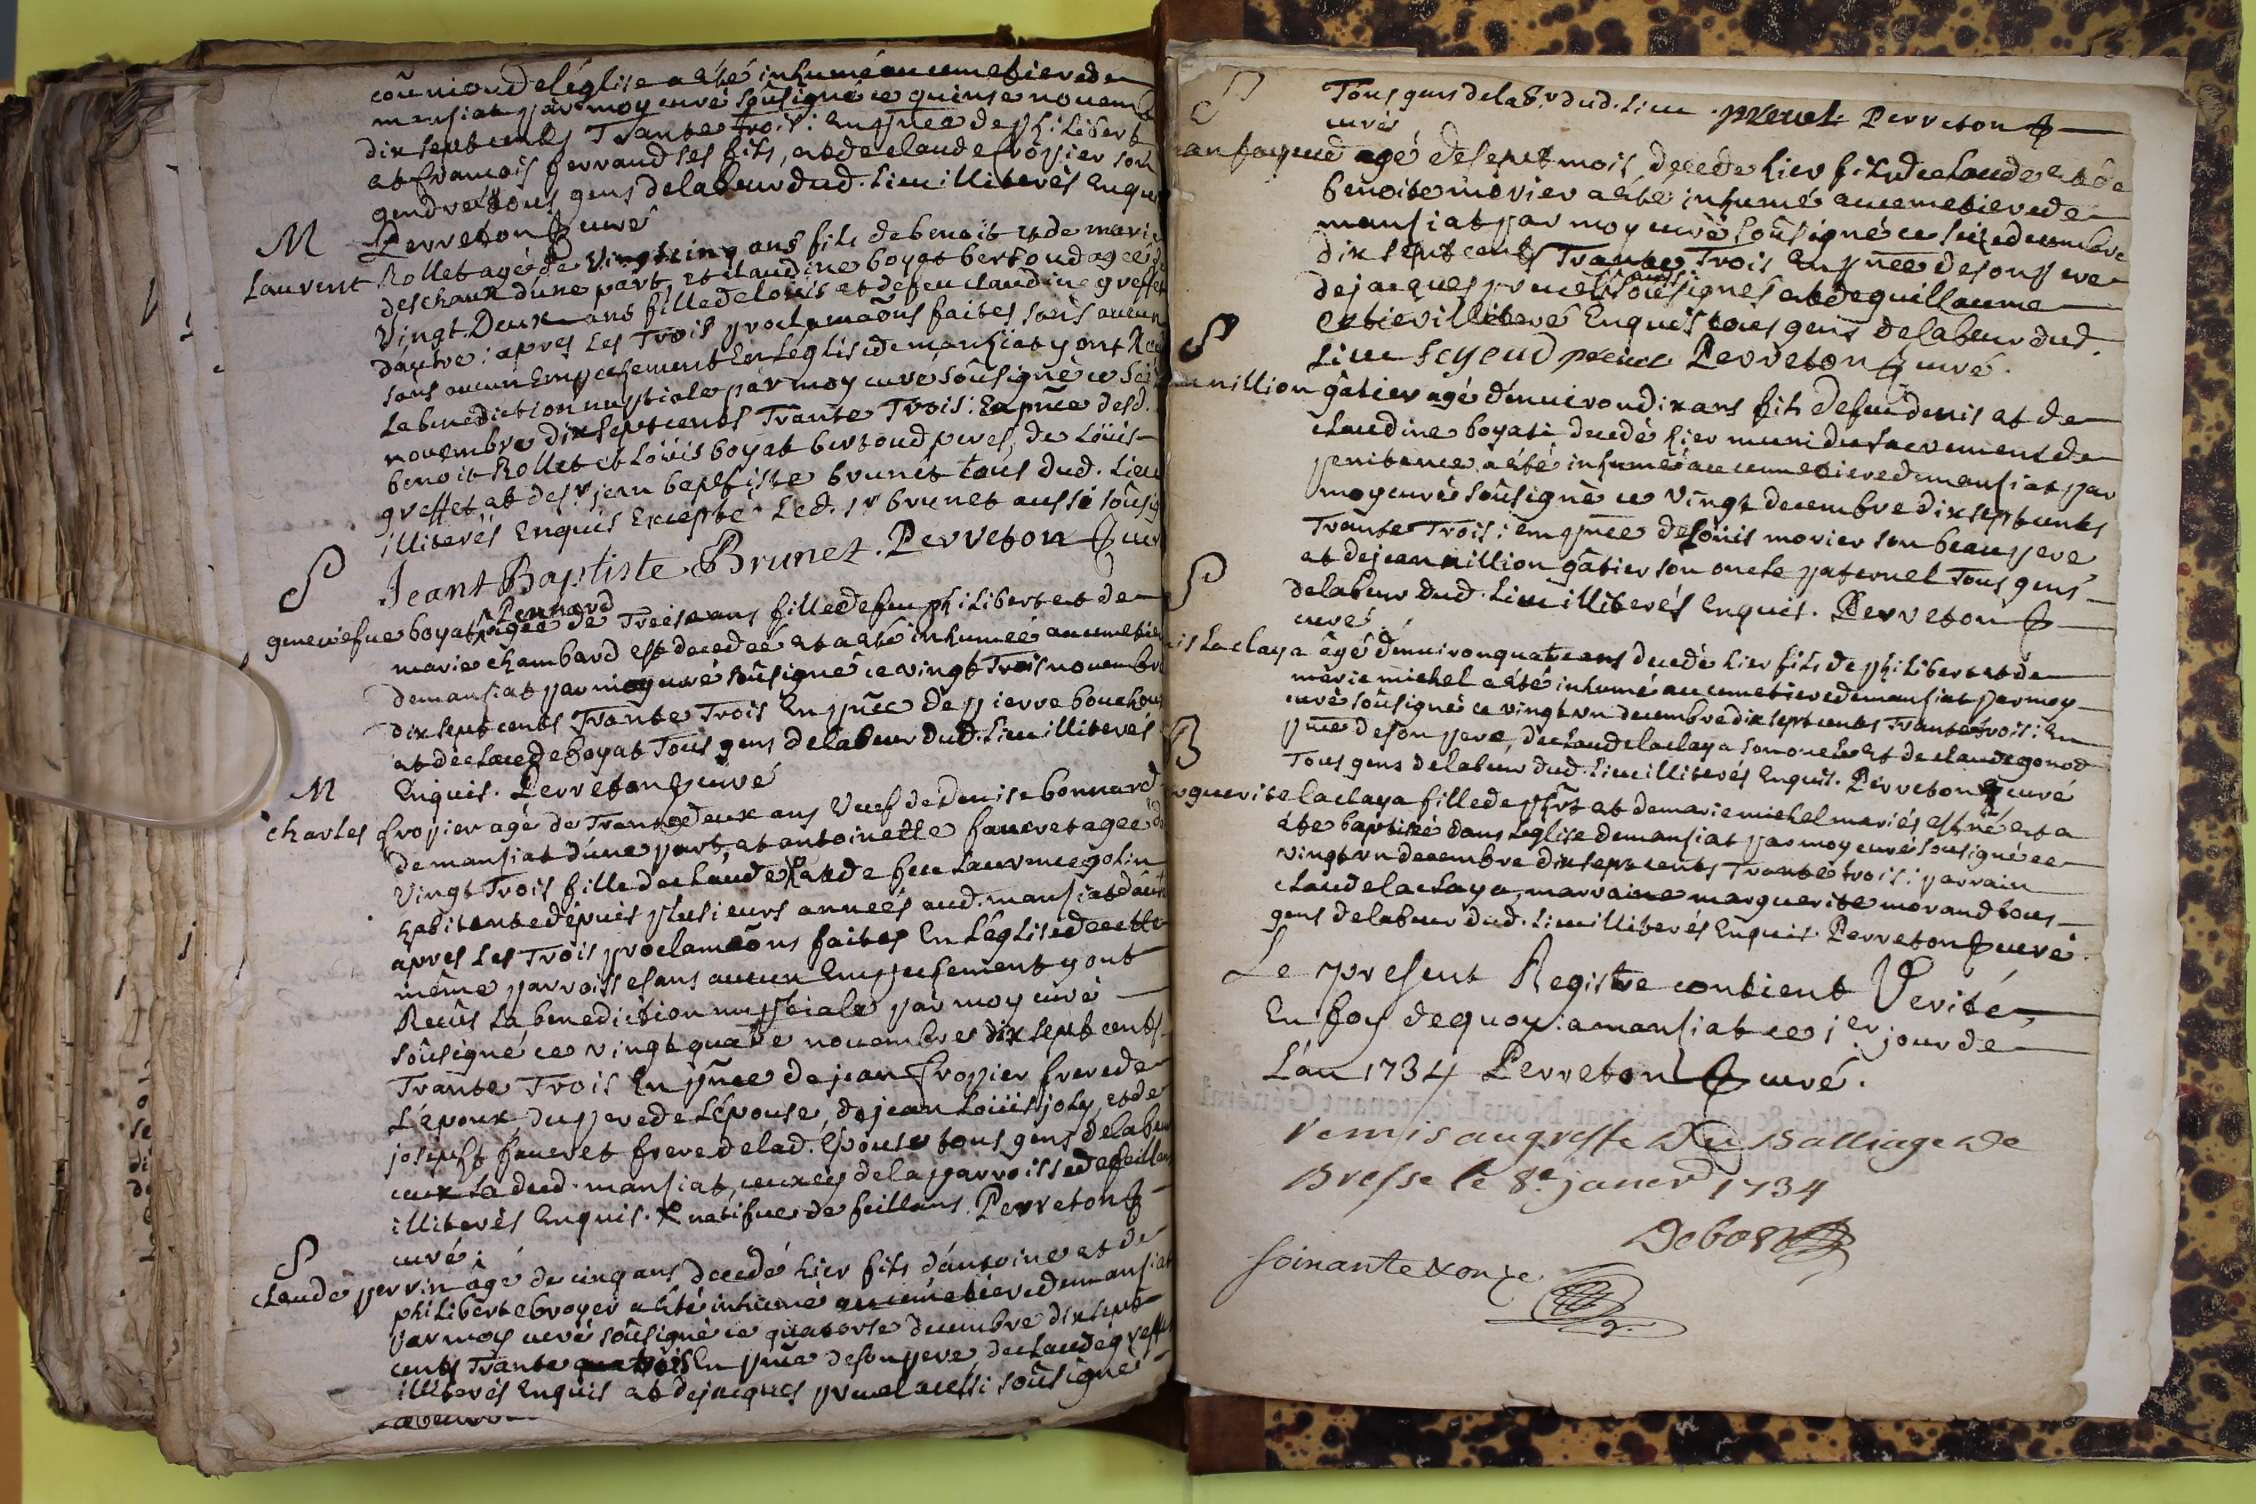 coũnion de léglise a été inhumé au cemetiere de
mansiat par moy curé soûsigné ce quinse novem
dix sept cents Trante Trois : En pñce de philibert
et francois ferrand ses fils, et de claude fropier son
gendre tous gens de labeur dud. Lieu illiterés Enquis
Perreton curé
M
Laurent Rollet agé de vingt cinq ans fils de benoit et de marie
deschaux d'une part, et claudine boyat bertoud agée de
vingt Deux ans fille de loüis et de feu claudine greffet
d'autre : apres les Trois proclamaõns faites sans aucun
sans aucun Empechement En Léglise de mansiat y ont Receu
La benediction nuptiale par moy curé soûsigné ce seize
novembre dix sept cents Trante Trois : En pñce desd.
benoit Rollet et Loüis boyat bertoud peres, de Loüis
greffet et de sr jean baptiste brunet tous dud. Lieu
illiterés Enquis Excepté Led. sr brunet aussi soûsig
Jeant Baptiste Brunet. Perreton curé
S
geneviefve boyat Pennard agée de Treise ans fille de feu philibert et de
marie chambard est decedeé et a été inhumeé au cemetiere
de mansiat par moy curé soûsigné ce vingt Trois novembre
dix sept cents Trante Trois En pñce de pierre bouchoux
et de claude boyat Tous gens de labeur dud. Lieu illiterés
Enquis. Perreton curé
M
charles fropier agé de Trante deux ans veuf de Denise bonnard
de mansiat d'une part, et antoinette faucret agée de
vingt Trois fille de claude et de feu Laurence golin
habitante dépuis plusieurs annees aud. mansiat d'autre
apres Les Trois proclamaõns faites En Léglise de cette
même parroisse sans aucun Empechement y ont
Recûs La benediction nuptiale par moy curé
soûsigné ce vingt quatre novembre dix sept cents
Trante Trois En pñce de jean fropier frere de
L'époux, du pere de L'épouse, de jean Loüis joly, et de
joseph faucret frere de lad. Epouse tous gens de labeur
ceux La dud. mansiat, ceux cy de la parroisse de feillans
illiterés Enquis. X natifve de feillans. Perreton
curé
S
claude perrin âgé de cinq ans decedé hier fils d'antoine et de
philiberte broyer a été inhumé au cemetiere de mansiat
par moy curé soûsigné ce quatorse decembre dix sept
cents Trante trois En pñce de son pere de claude greffet
illiterés Enquis et de jacques pruel aussi soûsigné
S
Tous gens de lab.r dud. Lieu. pruel. Perreton
curé
agé de sept mois decedé hier fils de claude et de
benoite morier a été inhumé au cemetiere de
mansiat par moy curé soûsigné ce decembre
dix sept cents Trante Trois En pñce de son pere
de jacques pruel soûsignés et de guillaume
illiteré Enquis tous gens de labeur dud.
Lieu feyeud pruel Perreton curé.
S
million gâtier agé d'environ dix ans fils de feu denis et de
claudine boyat decedé hier muni du sacrement de
penitence a été inhumé au cemetiere de mansiat par
moy curé soûsigné ce vingt decembre dix sept cents
Trante Trois : en pñce de loüis morier son beau pere
et de jean million gâtier son oncle paternel Tous gens
de labeur dud. Lieu illiterés Enquis. Perreton
curé
S
laclaya âgé d'environ quatre ans decedé hier fils de philibert et de
marie michel a été inhumé au cemetiere de mansiat par moy
curé soûsigné ce vingt un decembre dix sept cents Trante trois : En
pñce de son pere, de claude laclaya son oncle et de claude gonod
Tous gens de labeur dud. Lieu illiterés Enquis. Perreton curé
B
guerite laclaya fille de phrt et de marie michel mariés est né et a
été baptisé dans L'eglise de mansiat par moy curé soûsigné ce
vingt un decembre dix sept cents Trante trois : parrain
claude laclaya, marraine marguerite morand tous
gens de labeur dud. Lieu illiterés Enquis. Perreton curé.
Le present Registre contient Verité,
En foy de quoy : a mansiat ce 1er jour de
L'an 1734 Perreton curé.
remis au greffe Du Balliage De
Bresse le 8e janer 1734
Debost
soixante et onze